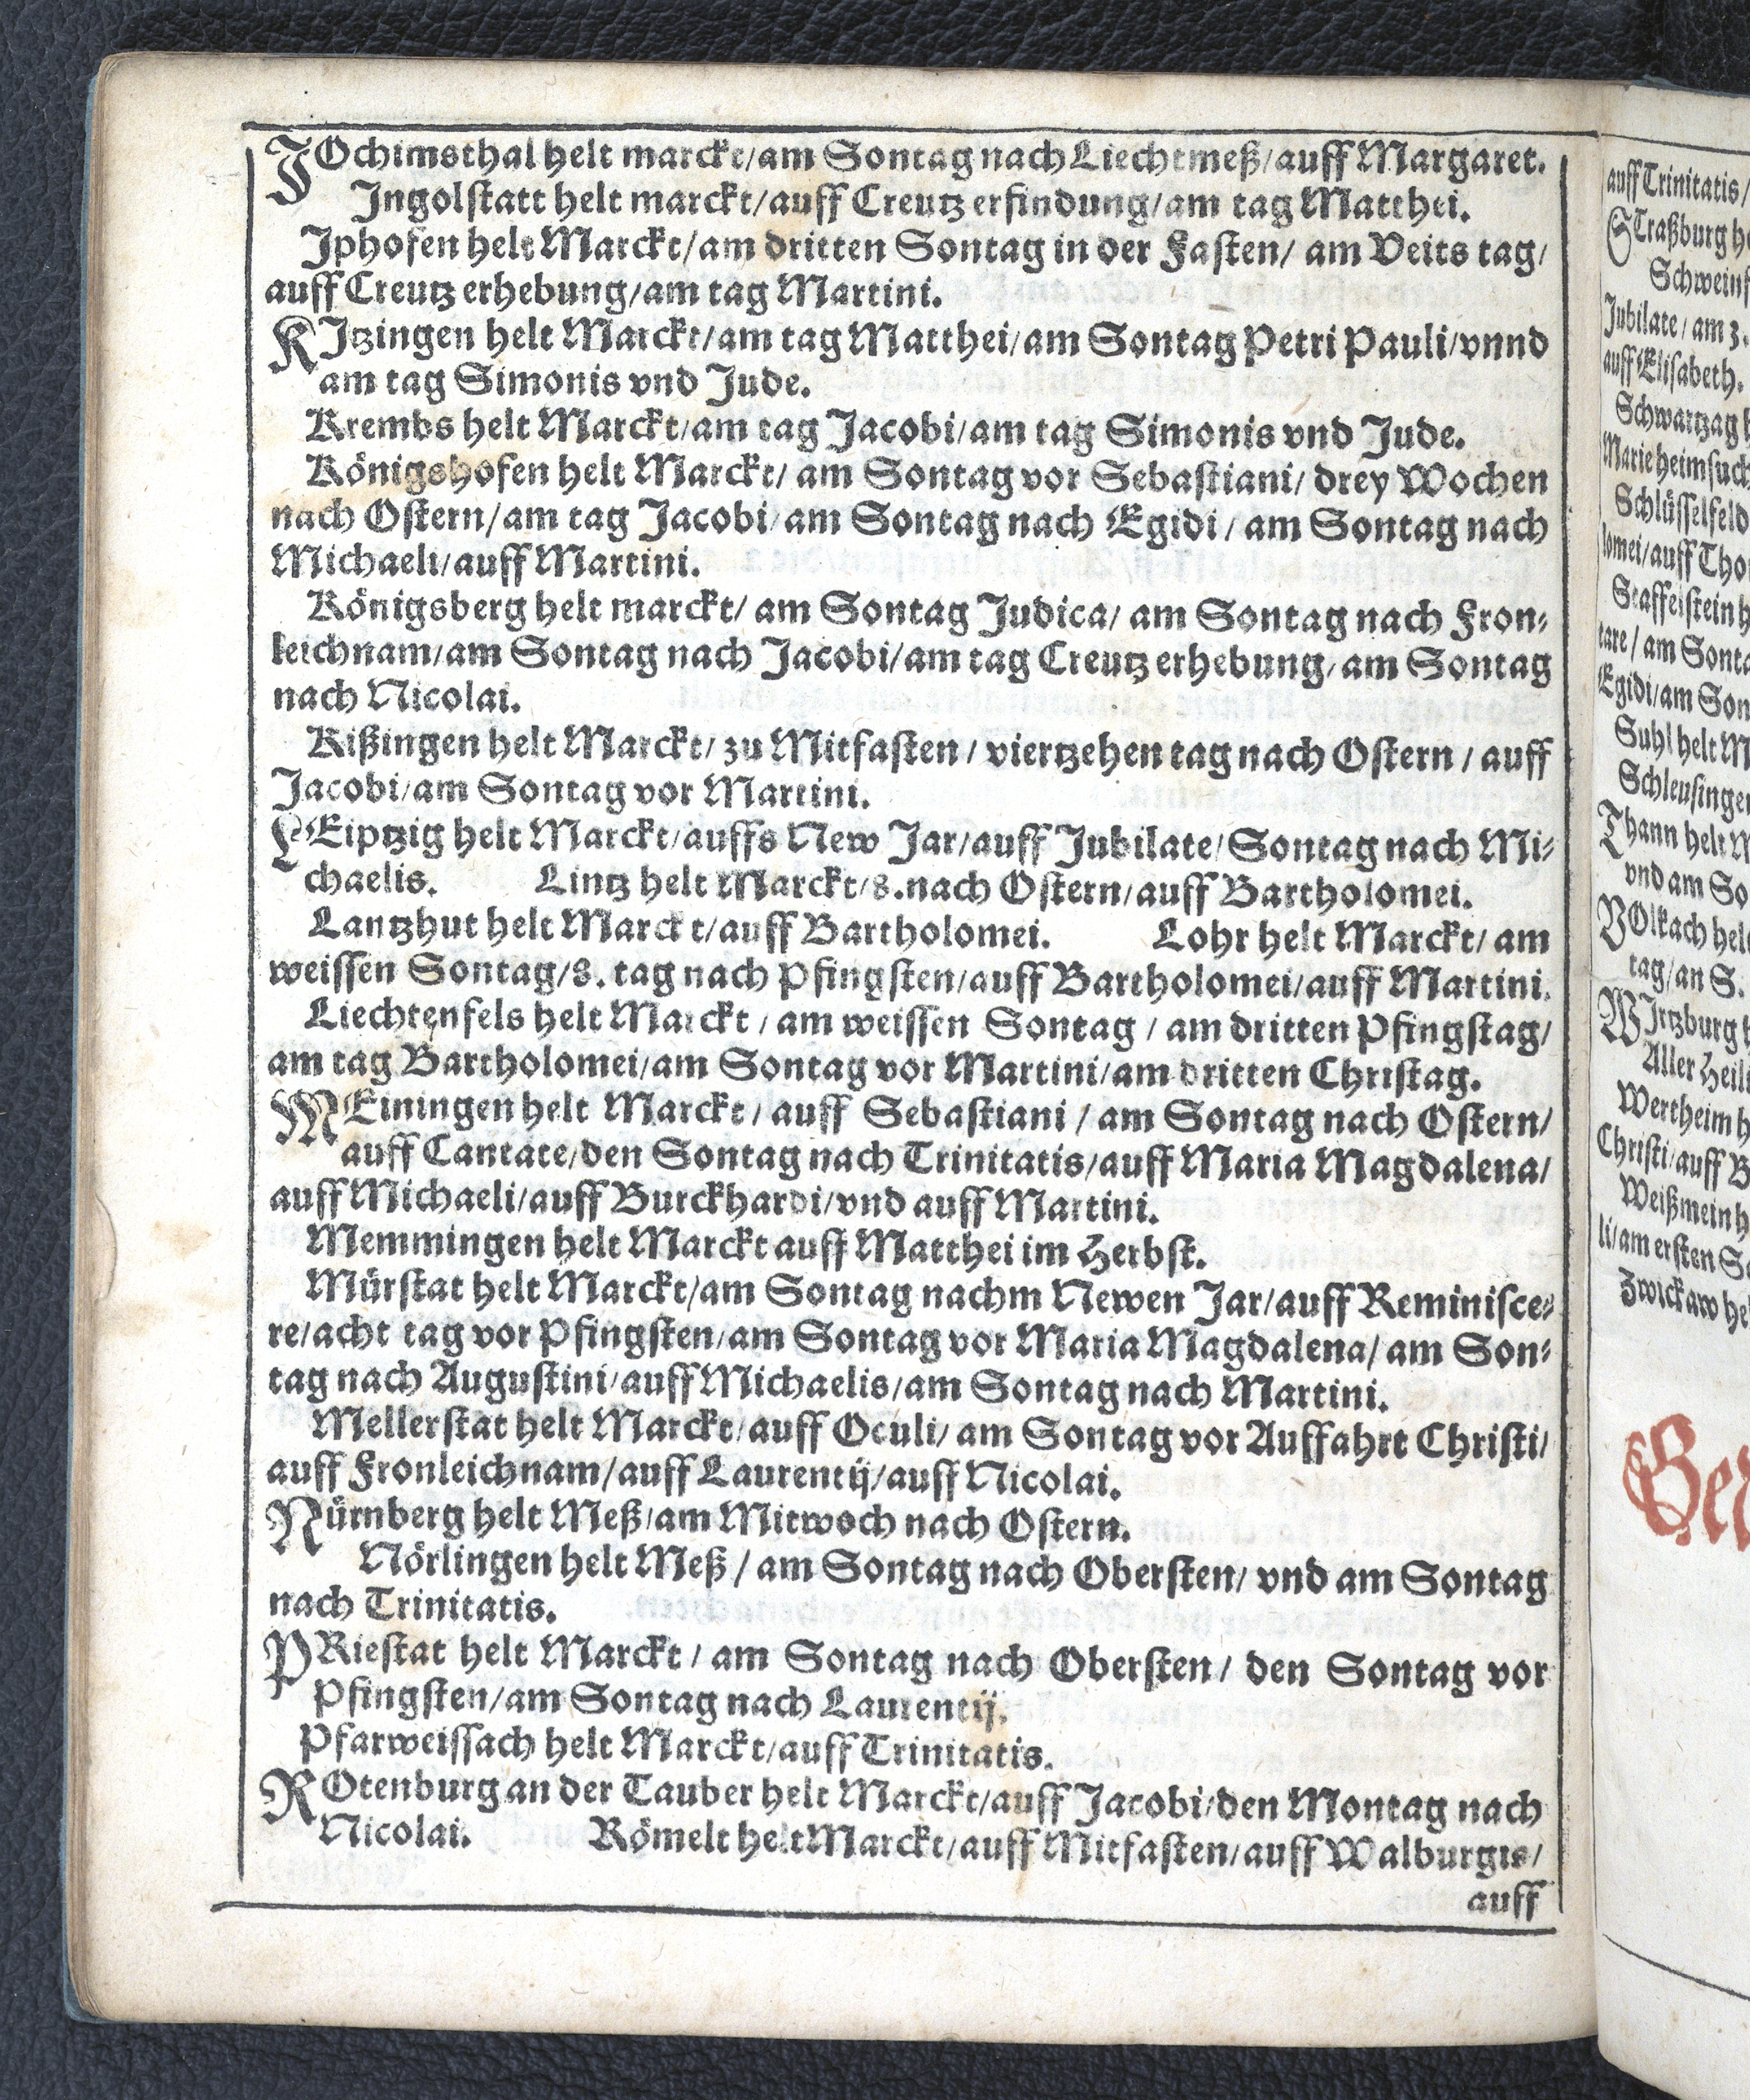 JOchimsthal helt marckt/am Sontag nach Liechtmeß/auff Margaret.
Ingolstatt helt marckt/auff Creutz erfindung/am tag Matthei.
Jphofen helt Marckt/am dritten Sontag in der Fasten/ am Veits tag/
auff Creutz erhebung/am tag Martini.
KJtzingen helt Marckt/am tag Matthei/am Sontag Petri Pauli/vnnd
am tag Simonis vnd Jude.
Krembs helt Marckt/am tag Jacobi/am tag Simonis vnd Jude.
Königshofen helt Marckt/ am Sontag vor Sebastiani/ drey Wochen
nach Ostern/am tag Jacobi/am Sontag nach Egidi/ am Sontag nach
Michaeli/auff Martini.
Königsberg helt marckt/ am Sontag Judica/ am Sontag nach Fron-
leichnam/am Sontag nach Jacobi/am tag Creutz erhebung/am Sontag
nach Nicolai.
Kißingen helt Marckt/ zu Mitfasten/ viertzehen tag nach Ostern/ auff
Jacobi/am Sontag vor Martini.
LEiptzig helt Marckt/auffs New Jar/auff Jubilate/Sontag nach Mi-
chaelis. Lintz helt Marckt/8.nach Ostern/auff Bartholomei.
Lantzhut helt Marckt/auff Bartholomei. Lohr helt Marckt/ am
weissen Sontag/8. tag nach Pfingsten/auff Bartholomei/auff Martini.
Liechtenfels helt Marckt/ am weissen Sontag/ am dritten Pfingstag/
am tag Bartholomei/am Sontag vor Martini/am dritten Christag.
MEiningen helt Marckt/ auff Sebastiani/ am Sontag nach Ostern/
auff Cantate/den Sontag nach Trinitatis/auff Maria Magdalena/
auff Michaeli/auff Burckhardi/vnd auff Martini.
Memmingen helt Marckt auff Matthei im Herbst.
Mürstat helt Marckt/am Sontag nachm Newen Jar/auff Reminisce-
re/acht tag vor Pfingsten/am Sontag vor Maria Magdalena/ am Son-
tag nach Augustini/auff Michaelis/am Sontag nach Martini.
Mellerstat helt Marckt/auff Oculi/ am Sontag vor Auffahrt Christi/
auff Fronleichnam/auff Laurentij/auff Nicolai.
Nürnberg helt Meß/am Mitwoch nach Ostern.
Nörlingen helt Meß/ am Sontag nach Obersten/ vnd am Sontag
nach Trinitatis.
PRiestat helt Marckt/ am Sontag nach Obersten/ den Sontag vor
Pfingsten/am Sontag nach Laurentij.
Pfarweissach helt Marckt/auff Trinitatis.
ROtenburg an der Tauber helt Marckt/auff Jacobi/den Montag nach
Nicolai. Römelt helt Marckt/auff Mitfasten/auff Walburgis/
auff
auff Trinitatis/
STraßburg
Jubilate/ am 3.
auff Elisabeth.
Schwartzag
Marie heimsuch
Schlüsselfeld
lomei/auff Tho
Staffelstein
tare/ am Sonta
Egidi/am Son
Suhl helt M
Schleusingen
Thann helt M
vnd am So
VOlkach hel
tag/an S.
WJrtzburg
Aller Heili
Wertheim
Christi/auff B
Weißmein
li/am ersten So
Zwickaw he
Ger